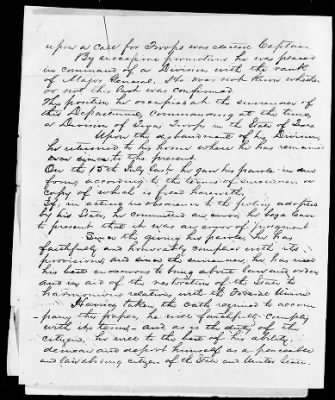 upon a call for Troops was elected Captain
By successive promotions he was placed
in command of a Division with the rank
of Major General. He was not known whether
or not this last was confirmed
The position he occupied at the surrender of
this Department, commanding at the time,
a Division of Texas Troops in the State of Texas
Upon the disbandment of his Division
he returned to his home where he has remained
ever since to this present
On the 15th July last he gave his parole in due
form, according to the terms of surrender, a
copy of which is filed herewith,
If, in acting in obedience to the policy adopted
by his State, he committed an error, he begs leave
to present that it was an error of judgment
Since the giving his parole, he has
faithfully and honorably complied with its
provisions, and since the surrender, he has used
his best endeavors to bring about law and order
and in aid of the restoration of the State to
harmonious relations with the Federal Union
Having taken the Oath required to accom-
pany this paper, he will faithfully comply
with its terms - and as is the duty of the
citizen, he will to the best of his ability,
demean and deport himself as a peaceable
and law abiding citizen of the State and United States.